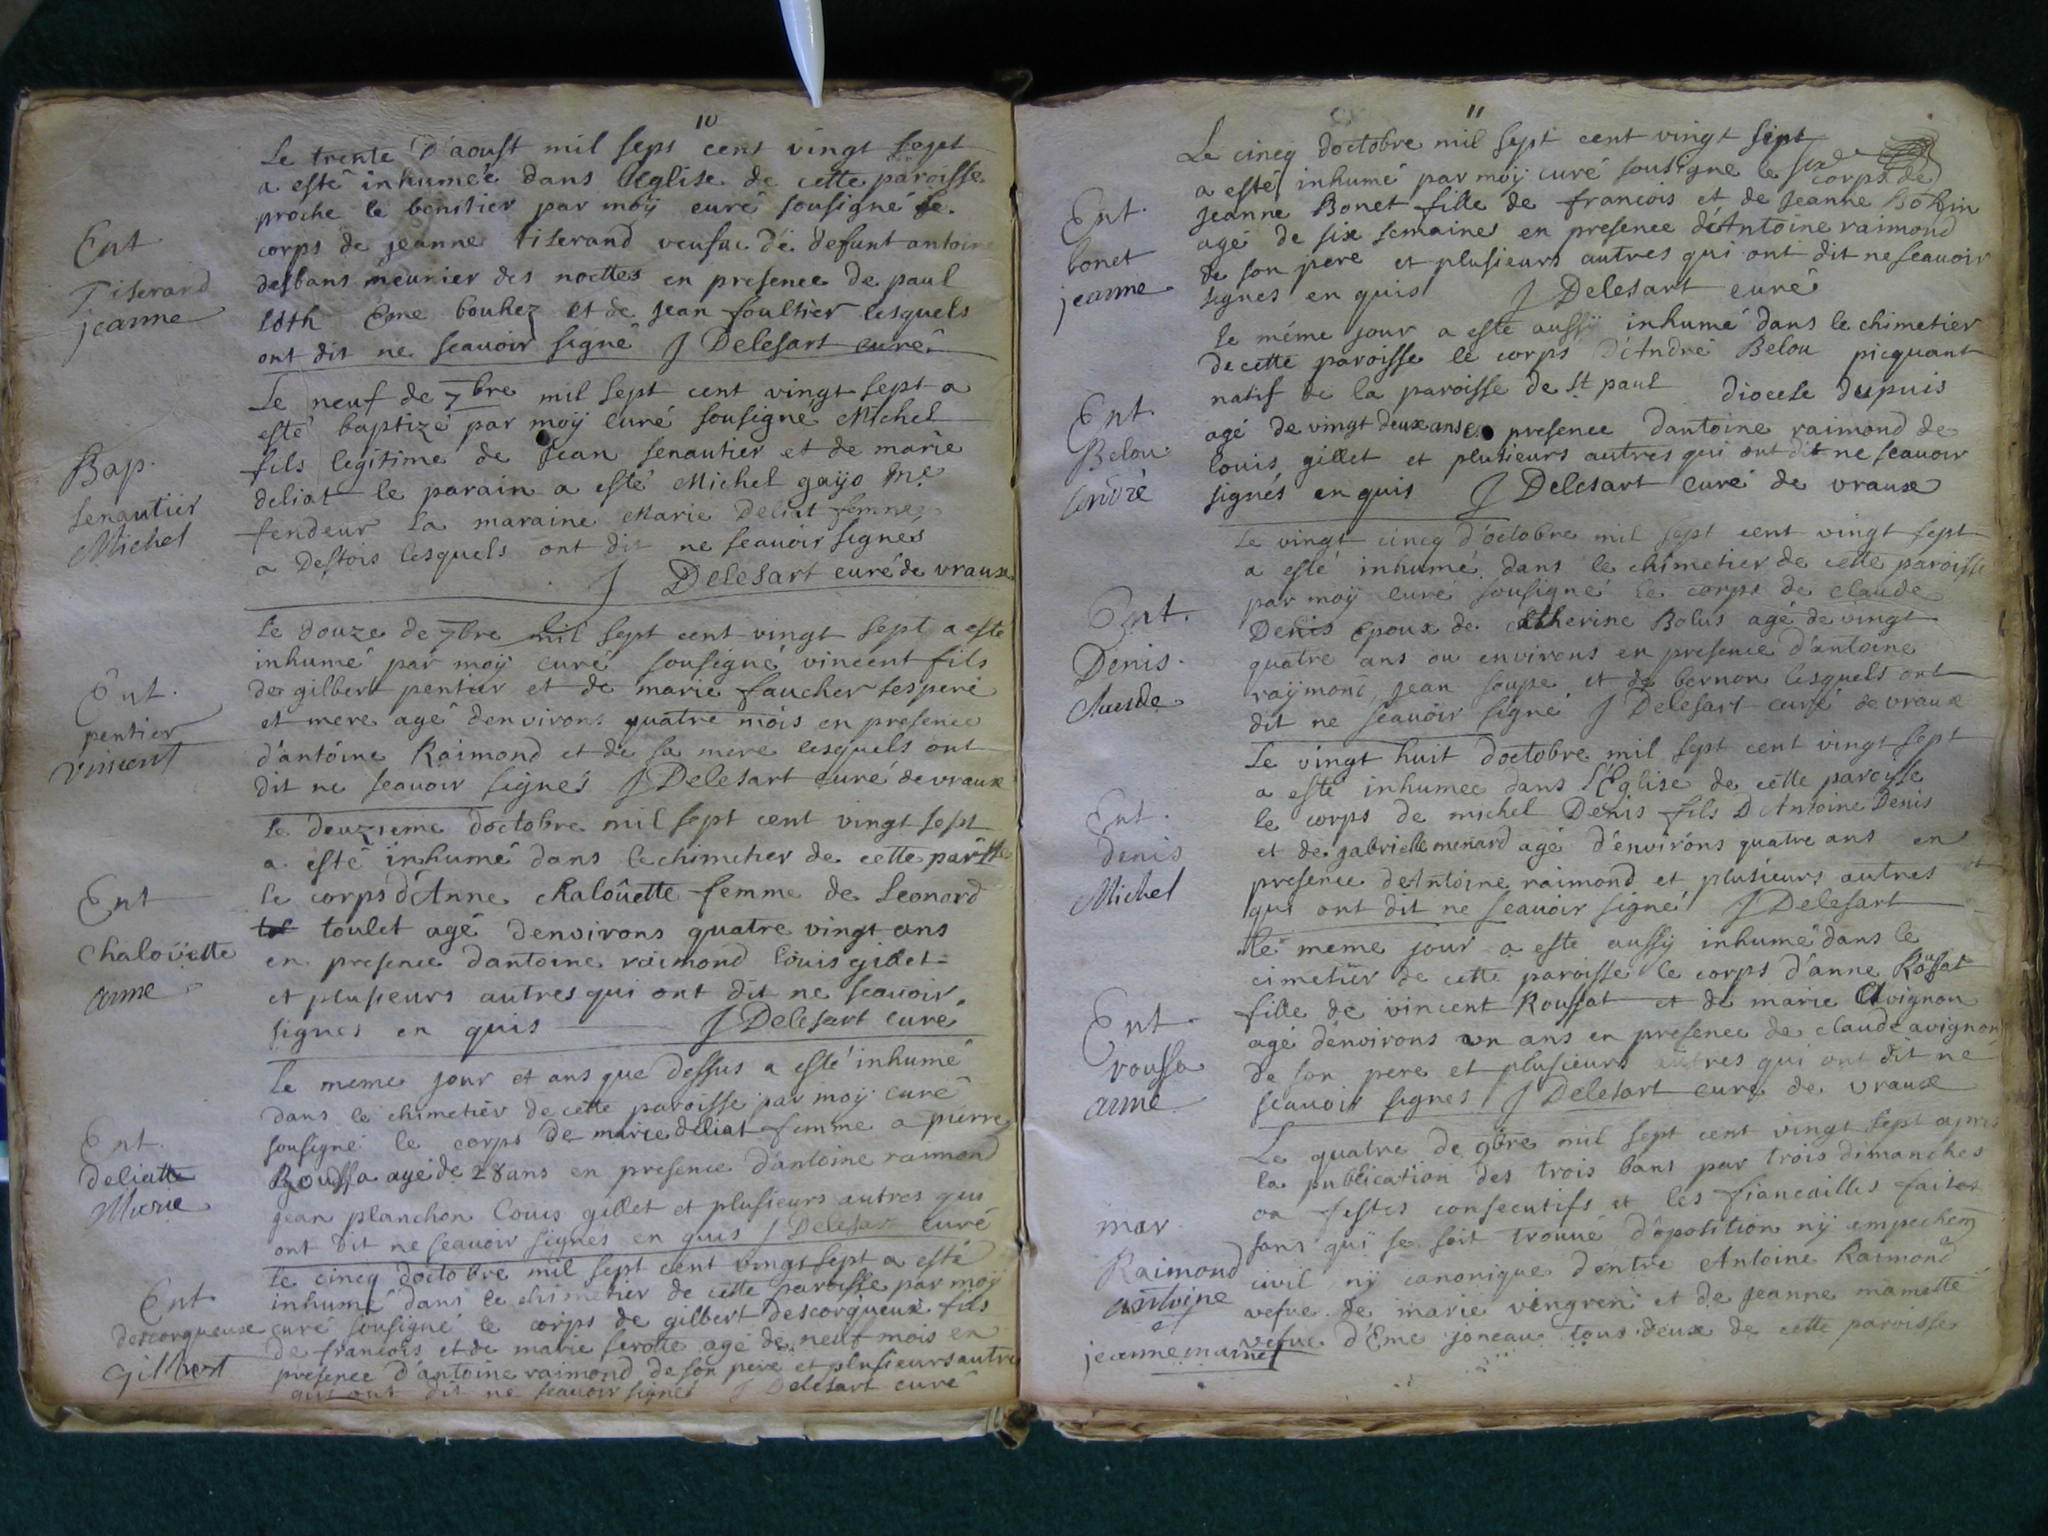 10
Le trente d'aoust mil sept cent vingt sept
a esté inhumée dans l'Eglise de cette paroisse
proche le benitier par moÿ curé sousigné le
corps de jeanne tiserand veufue de defunt antoine
desbans meunier des noettes en presence de paul
Edme bouhez et de jean foultier lesquels
ont dit ne scauoir signé J Delesart curé
Ent
Tiserand
jeanne
Le neuf de 7bre mil sept cent vingt sept a
esté baptizé par moÿ curé sousigné Michel
fils legitime de jean senautier et de marie
deliat le parain a esté Michel gaÿo me
fendeur la maraine Marie Deliat femme
a Destois lesquels ont dit ne scauoir signés
J Delesart curé de vraux
Bap.
senautier
Michel
Le douze de 7bre mil sept cent vingt sept a esté
inhumé par moÿ curé sousigné vincent fils
de gilbert pentier et de marie faucher ses peré
et mere agé d'environs quatre mois en presence
d'antoine Raimond et de sa mere lesquels ont
dit ne scauoir signés J Delesart curé de vraux
Ent.
pentier
vincent
Le deuzieme doctobre mil sept cent vingt sept
a esté inhumé dans le chimetier de cette parsse
le corps d'Anne chaloûette femme de Leonard
toulet agé denvirons quatre vingt ans
en presence dantoine raimond louis gillet
et plusieurs autres qui ont dit ne scauoir
signes en quis J Delesart curé
Ent
chaloüette
anne
Le meme jour et ans que dessus a esté inhumé
dans le chimetier de cette paroisse par moÿ curé
sousigné le corps de marie deliat femme a pierre
Roussa agé de 28 ans en presence d'antoine raimond
jean planchon louis gillet et plusieurs autres qui
ont dit ne scauoir signés en quis J Delesar curé
Ent.
deliatte
Marie
Le cincq doctobre mil sept cent vingt sept a esté
inhumé dans le chimetier de cette paroisse par moÿ
curé sousigné le corps de gilbert descorqueux fils
de francois et de marie serotte agé de neuf mois en
presence d'antoine raimond de son pere et plusieurs autre
qui ont dit ne scauoir signés J Delesart curé
Ent
descorqueuxe
Gilbert
11
Le cincq doctobre mil sept cent vingt sept
a esté inhumé par moÿ curé sousigné le corps de
jeanne Bonet fille de francois et de jeanne
agé de six semaines en presence d'Antoine raimond
de son pere et plusieurs autres qui ont dit ne scauoir
signes en quis J Delesart curé
Ent.
bonet
jeanne
Le même jour a esté aussÿ inhumé dans le chimetier
de cette paroisse le corps d'André Belou picquant
natif de la paroisse de St paul diocese dupuis
agé de vingt deux ans en presence dantoine raimond de
louis gillet et plusieurs autres qui ont dit ne scauoir
signés en quis J Delesart curé de vraux
Ent
Belou
André
Le vingt cincq d'octobre mil sept cent vingt sept
a esté inhumé dans le chimetier de cette paroisse
par moÿ curé sousigné le corps de claude
Denis Epoux de catherine Bolus agé de vingt
quatre ans ou environs en presence d'antoine
raÿmond, jean soupe et de bernon lesquels ont
dit ne scauoir signé J Delesart curé de vraux
Ent.
Denis
Claude
Le vingt huit doctobre mil sept cent vingt sept
a esté inhumee dans l'Eglise de cette paroisse
le corps de michel Denis fils D'Antoine Denis
et de gabrielle menard agé d'environs quatre ans en
presence d'Antoine raimond et plusieurs autres
qui ont dit ne scauoir signé J Delesart
Ent.
denis
Michel
Le meme jour a esté aussÿ inhumé dans le
cimetier de cette paroisse le corps d'anne Roussat
fille de vincent Roussat et de marie Avignon
agé d'environs un ans en presence de claude avignon
de son pere et plusieurs autres qui ont dit ne
scauoir signes J Delesart cure de vraux
Ent.
roussa
anne
Le quatre de 9bre mil sept cent vingt sept apres
la publication des trois bans par trois dimanches
ou festes consecutifs et les fiancailles faites
sans qui se soit trouué d'oposition nÿ empechem
civil nÿ canonique d'entre Antoine Raimond
vefue de marie vengren et de jeanne mamette
vefue d'Eme joneau tous deux de cette paroisse
mar
Raimond
antoine
et
jeanne mamet